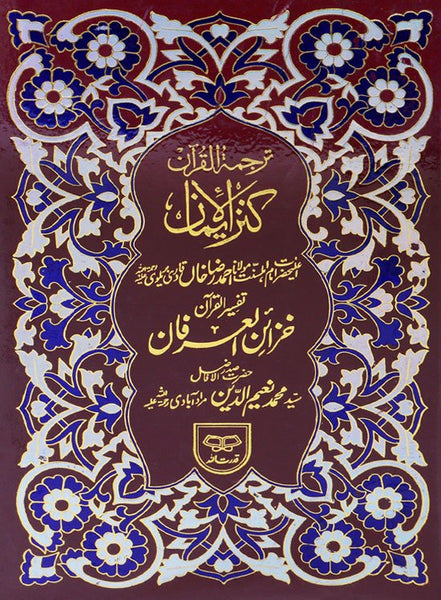 ترجمۃ القرآن
کنزالایمان
اعلیٰحضرت امام اہلسنت مولانا احمد رضا خاں قادری بریلوی رحمۃ اللہ علیہ
تفسیر القرآن
خزائن العرفان
حضرت صدر الافاضل
سید محمد نعیم الدین مراد آبادی رحمۃ اللہ علیہ
قدرت اللہ